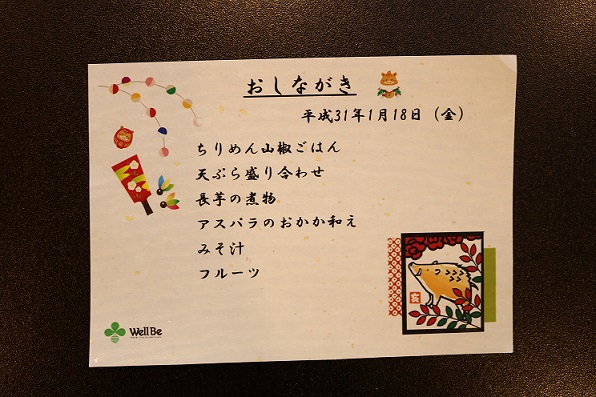 おしながき
平成31年1月18日（金）
ちりめん山椒ごはん
天ぷら盛り合わせ
長芋の煮物
アスパラのおかか和え
みそ汁
フルーツ
亥
WellBe